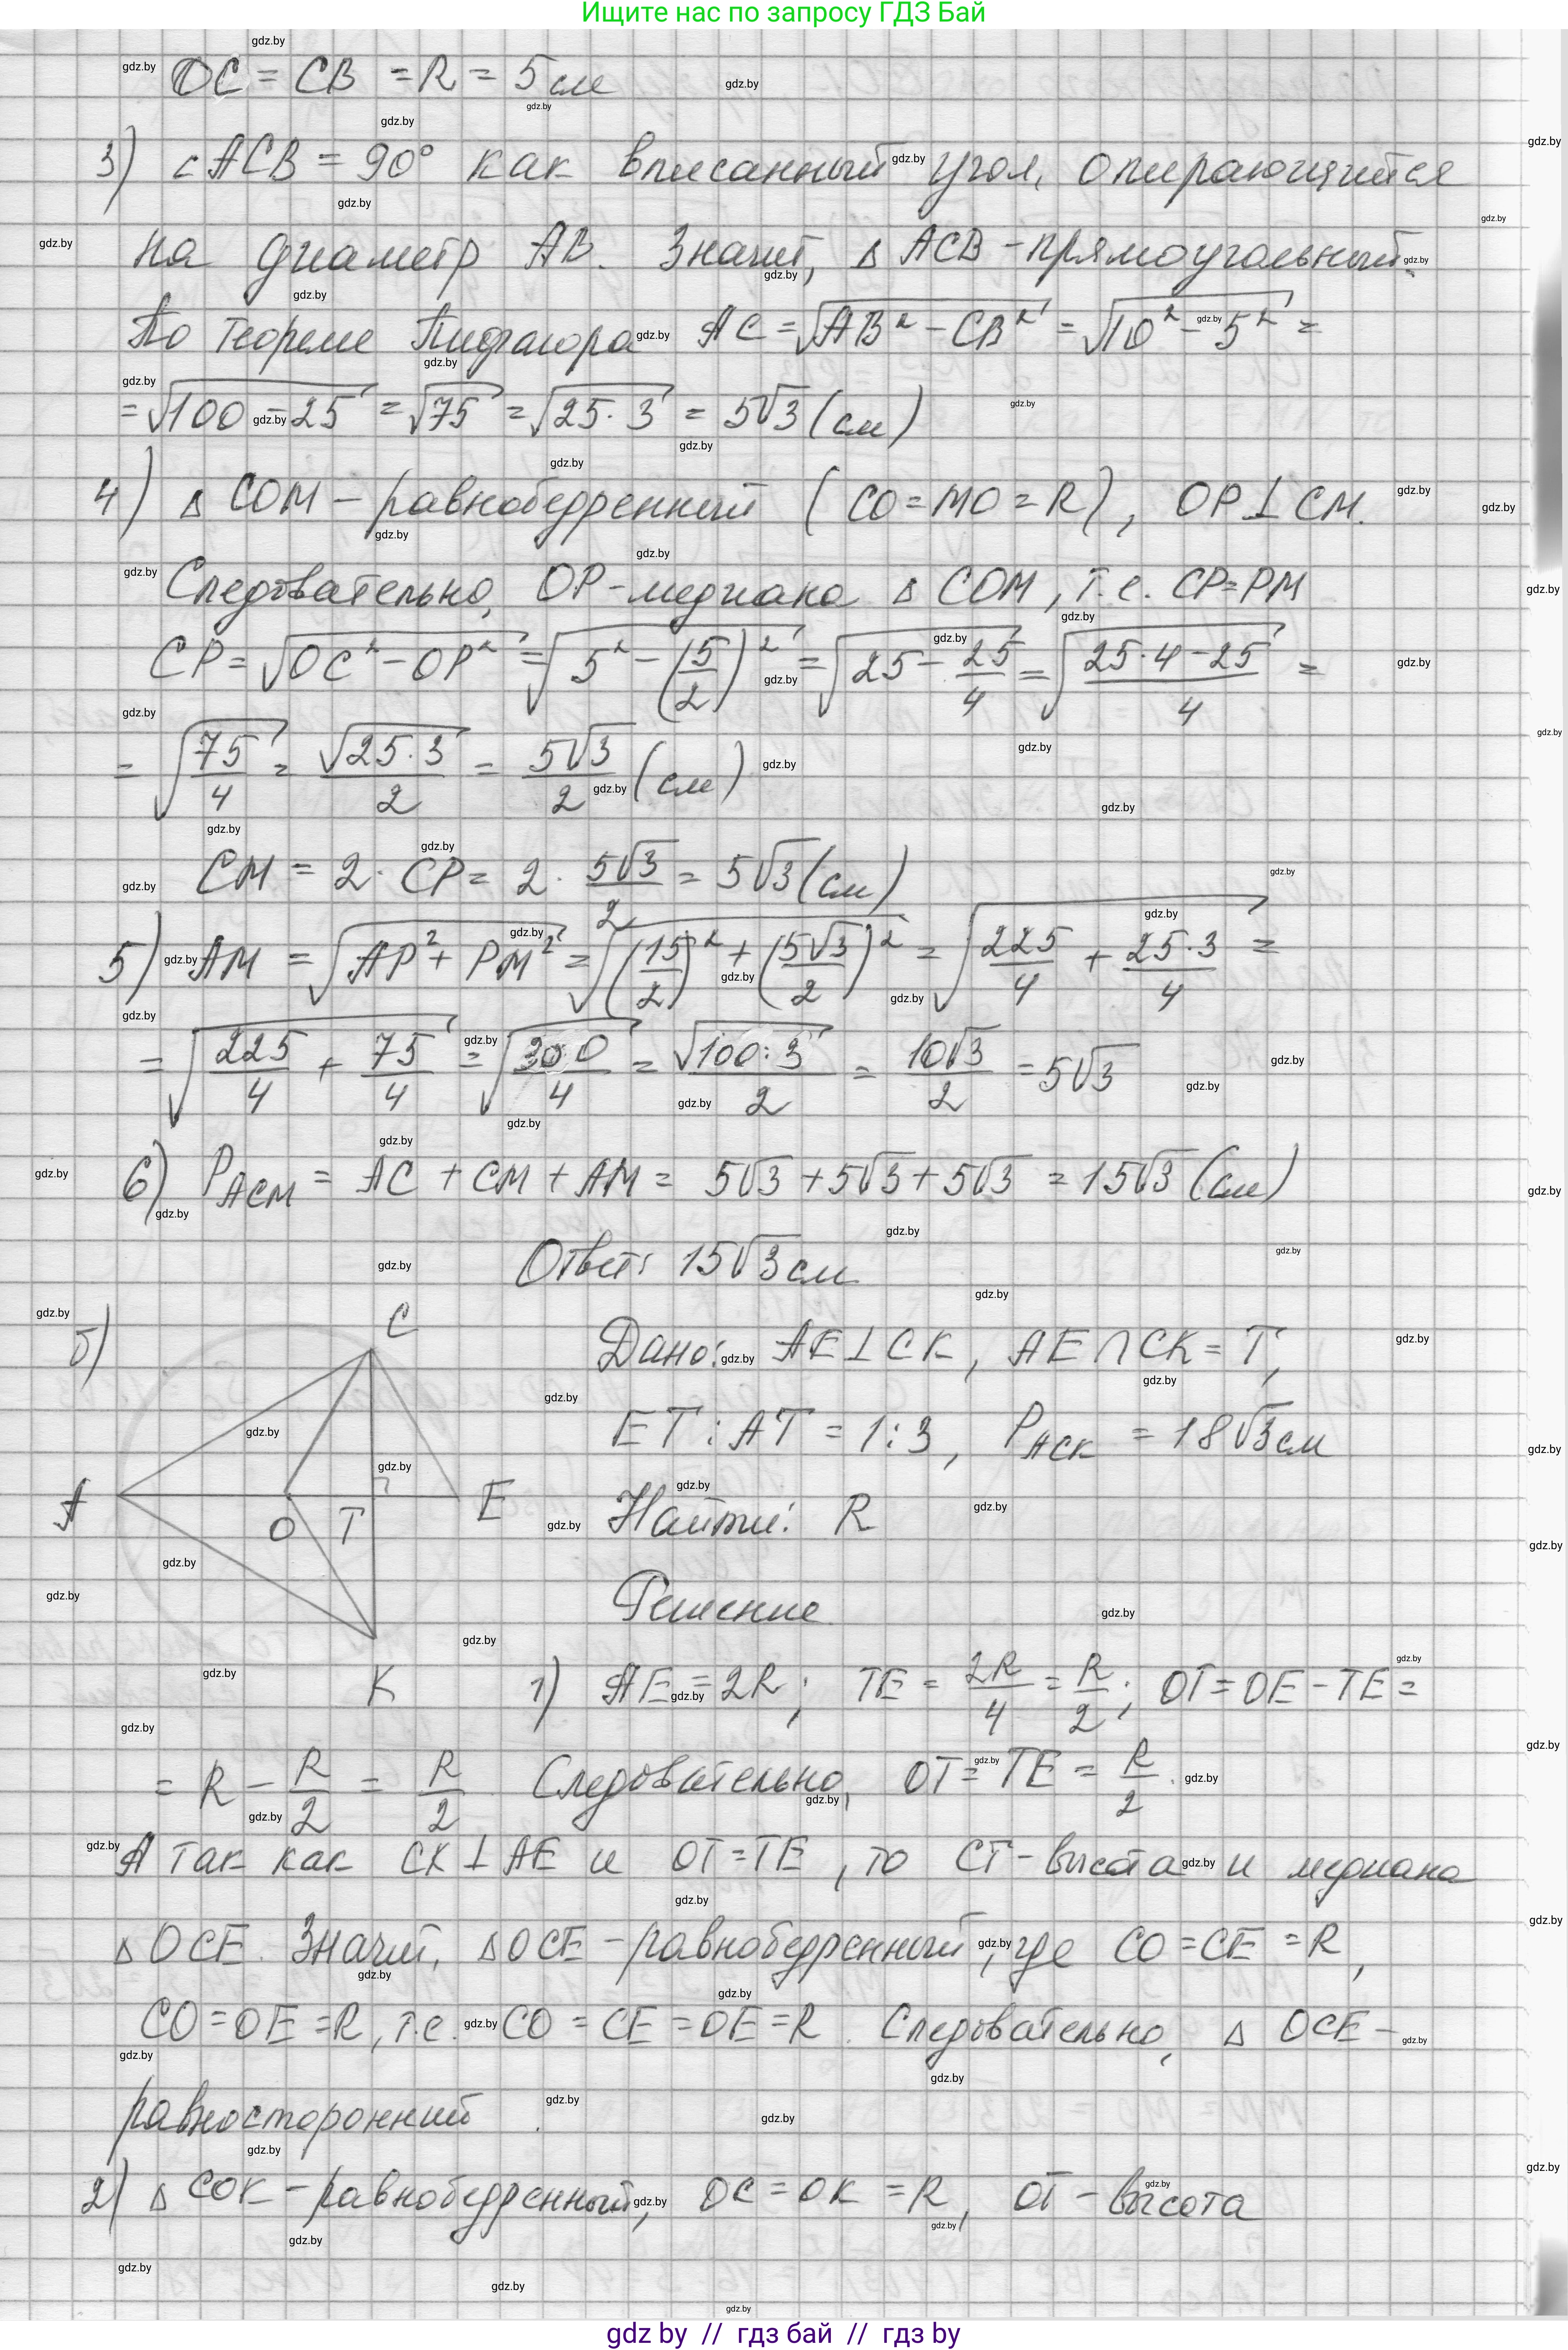 Ищите нас по запросу ГДЗ Бай
OC = CB = R = 5 см
3) ∠ACB = 90° как вписанный угол, опирающийся
на диаметр AB. Значит, Δ ACB - прямоугольный.
По теореме Пифагора AC = √(AB² - CB²) = √(10² - 5²) =
= √(100 - 25) = √75 = √(25·3) = 5√3 (см)
4) Δ COM - равнобедренный (CO = MO = R), OP ⊥ CM.
Следовательно, OP - медиана Δ COM, т.е. CP = PM
CP = √(OC² - OP²) = √(5² - (5/2)²) = √(25 - 25/4) = √((25·4 - 25)/4) =
= √(75/4) = √(25·3)/2 = 5√3/2 (см)
CM = 2 · CP = 2 · 5√3/2 = 5√3 (см)
5) AM = √(AP² + PM²) = √((15/2)² + (5√3/2)²) = √(225/4 + 25·3/4) =
= √(225/4 + 75/4) = √(300/4) = √(100·3)/2 = 10√3/2 = 5√3
6) P_ACM = AC + CM + AM = 5√3 + 5√3 + 5√3 = 15√3 (см)
Ответ: 15√3 см
б)
C
A
O
T
E
K
Дано: AE ⊥ CK, AE ∩ CK = T,
ET : AT = 1:3, P_ACK = 18√3 см
Найти: R
Решение
1) AE = 2R; TE = 2R/4 = R/2; OT = OE - TE =
= R - R/2 = R/2 Следовательно, OT = TE = R/2.
А так как CK ⊥ AE и OT = TE, то CT - высота и медиана
Δ OCE. Значит, Δ OCE - равнобедренный, где CO = CE = R,
CO = OE = R, т.е. CO = CE = OE = R. Следовательно, Δ OCE -
равносторонний.
2) Δ COK - равнобедренный, OC = OK = R, OT - высота
gdz by // гдз бай // гдз by